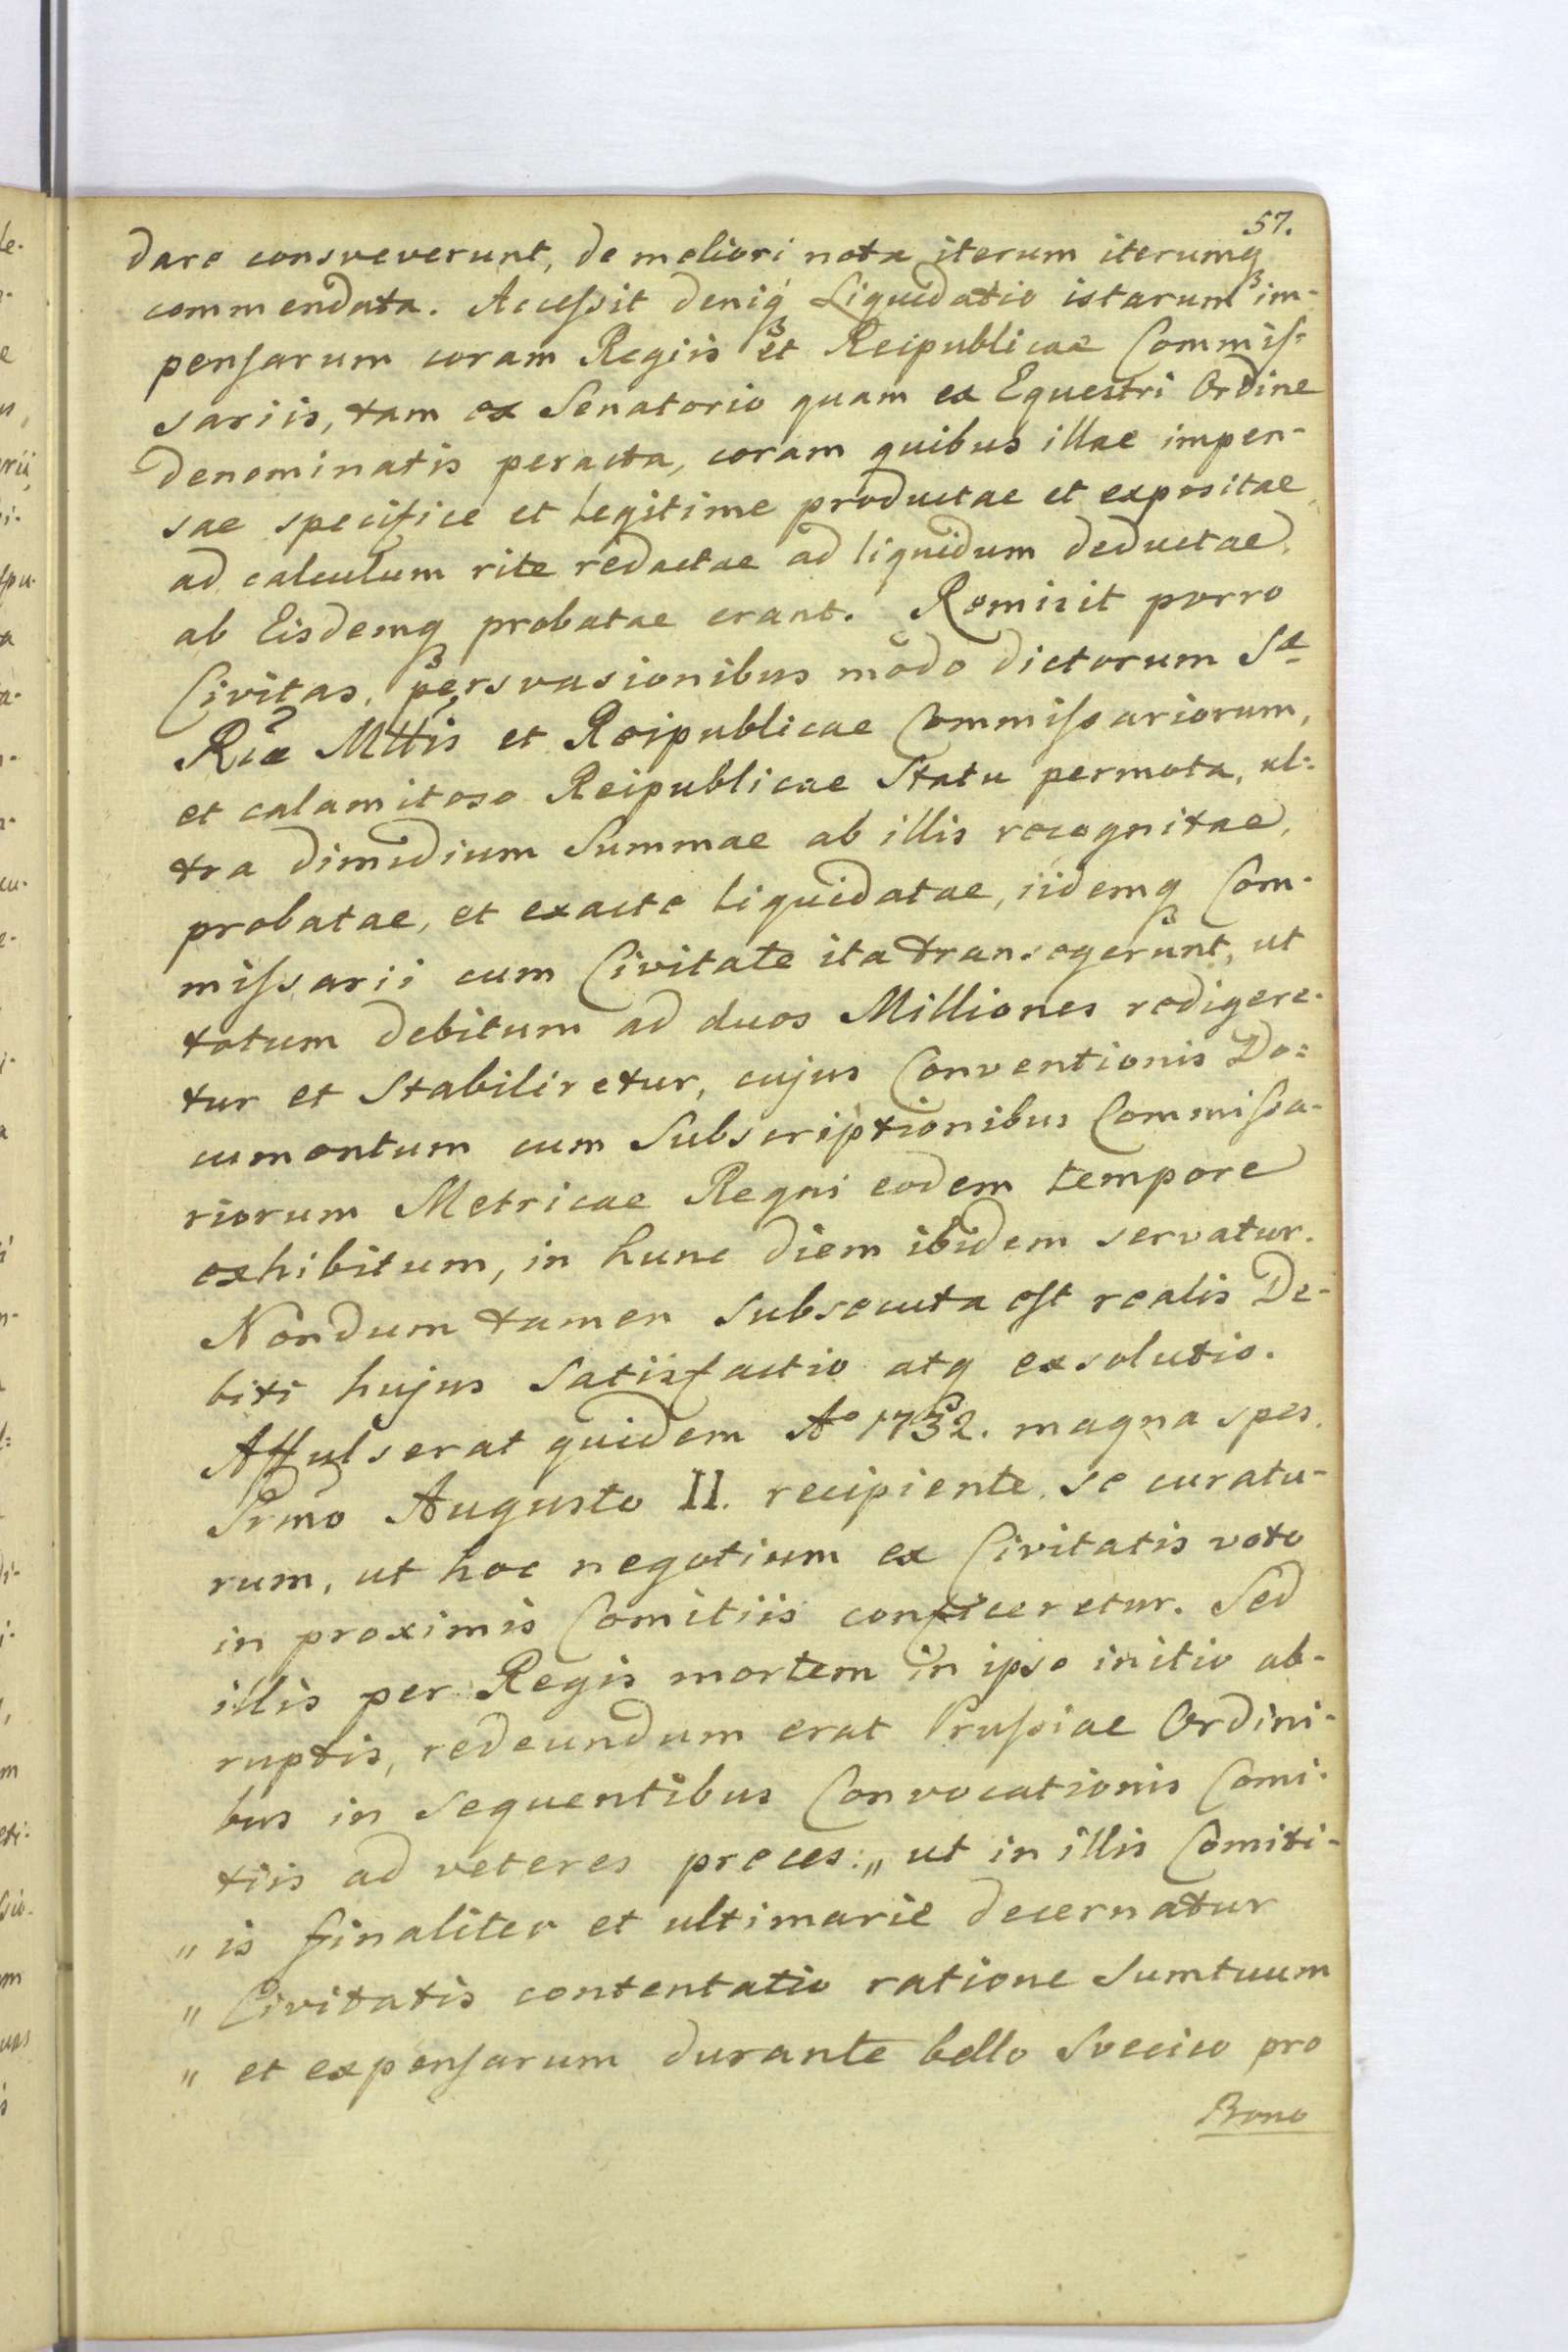 57.
dare consveverunt, de meliori nota iterum iterumq₃
commendata. Accessit deniq₃ Liquidatio istarum im-
pensarum coram Regiis et Reipublicae Commis=
sariis, tam ex Senatorio quam ex Equestri Ordine
denominatis peracta, coram quibus illae impen-
sae specifice et legitime productae et expositae,
ad calculum rite redactae ad liquidum deductae,
ab Eisdemq₃ probatae erant. Remisit porro
Civitas, persvasionibus modo dictorum Sæ
Riæ Mttis et Reipublicae Commissariorum,
et calamitoso Reipublicae Statu permota, ul=
tra dimidium Summae ab illis recognitae,
probatae, et exacte liquidatae, iidemq₃ Com-
missarii cum Civitate ita transegerunt, ut
totum debitum ad duos Milliones redigere-
tur et Stabiliretur, cujus Conventionis Do=
cumentum cum Subscriptionibus Commissa-
riorum Metricae Regni eodem tempore
exhibitum, in hunc diem ibidem servatur.
Nondum tamen Subsecuta est realis De-
biti hujus Satisfactio atq₃ exsolutio.
Affulserat quidem Aº 1732. magna spes,
Srmo Augusto II. recipiente, se curatu-
rum, ut hoc negotium ex Civitatis voto
in proximis Comitiis conficeretur. Sed
illis per Regis mortem in ipso initio ab-
ruptis, redeundum erat Prussiae Ordini-
bus in Sequentibus Convocationis Comi-
tiis ad veteres preces: „ ut in illis Comiti-
„ is finaliter et ultimarie decernatur
„ Civitatis contentatio ratione Sumtuum
„ et expensarum durante bello Svecico pro
Bono